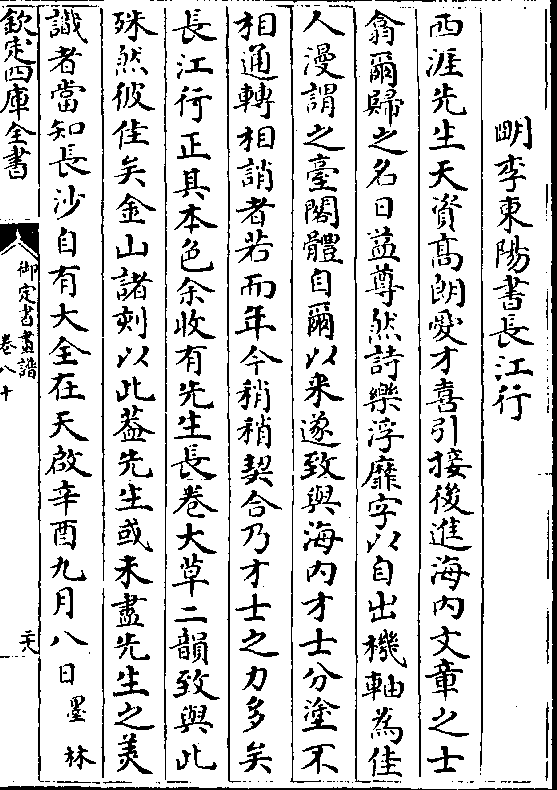 明李東陽書長江行
西涯先生天資高朗愛才喜引接後進海内文章之士
翕爾歸之名日益尊然詩樂浮靡字以自出機軸為佳
人漫謂之臺閣體自爾以来遂致與海内才士分塗不
相通轉相誚者若而年今稍稍契合乃才士之力多矣
長江行正具本色余收有先生長卷大草二韻致與此
殊然彼佳矣金山諸刻以此葢先生或未盡先生之美
識者當知長沙自有大全在天啟辛酉九月八日墨林
欽定四庫全書
御定書畫譜
卷八十
六